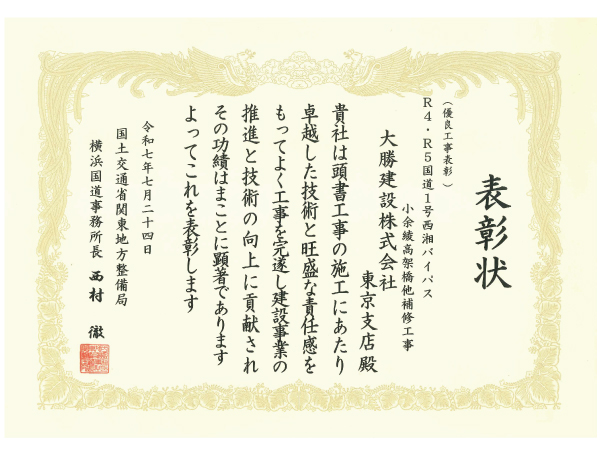 表彰状
（優良工事表彰）
R4・R5国道1号西湘バイパス
小余綾高架橋他補修工事
大勝建設株式会社
東京支店殿
貴社は頭書工事の施工にあたり
卓越した技術と旺盛な責任感を
もってよく工事を完遂し建設事業の
推進と技術の向上に貢献され
その功績はまことに顕著であります
よってこれを表彰します
令和七年七月二十四日
国土交通省関東地方整備局
横浜国道事務所長 西村 徹